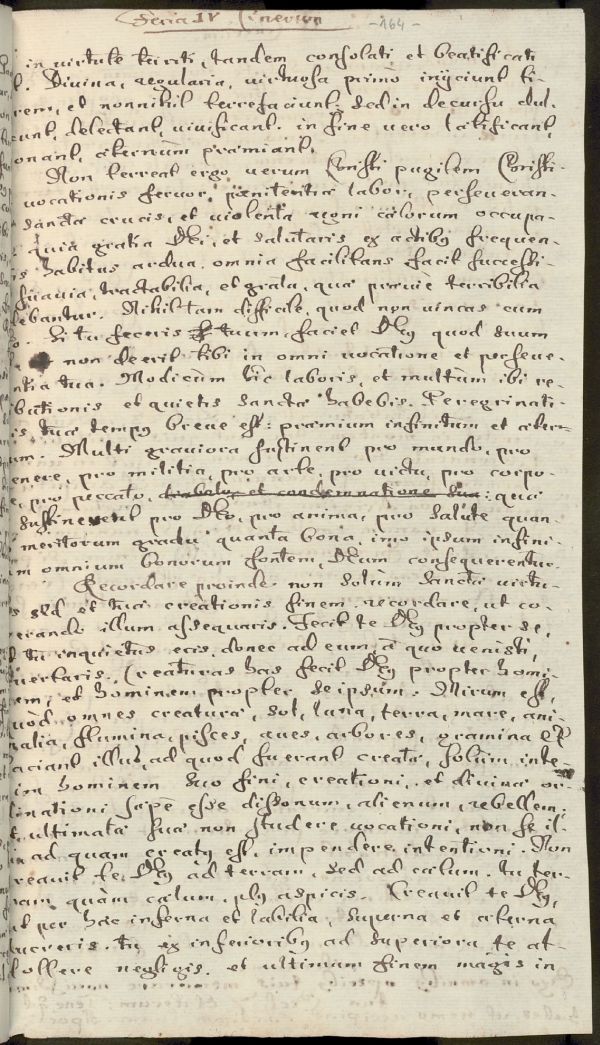 Feria IV Cinerum
-164-
in virtute territi, tandem consolati et beatificati
Divina, regularia, virtuosa primo injiciunt ti-
rem, et nonnihil terrefaciunt: sed in decursu dul-
cunt, delectant, vivificant. in fine vero lætificant,
onant, æternum præmiant.
Non terreat ergo verum Christi pugilem Christi-
vocationis fervor, pænitentiæ labor, perseveran-
sanctæ crucis, et violenta regni cælorum occupa-
quia gratia Dei, et salutaris ex actibus frequen-
is habitus ardua omnia facilitans facit successi-
suavia, tractabilia, et grata, quæ prævie terribilia
debantur. Nihil tam difficile, quod non vincas cum
o. Si tu feceris tuum, faciet Deus quod suum
non deerit tibi in omni vocatione et perseve-
ntia tua. Modicum hic laboris, et multum ibi re-
ibutionis et quietis sanctæ habebis. Peregrinati-
is tuæ tempus breve est: præmium infinitum et æter-
um. Multi graviora sustinent pro mundo, pro
enere, pro militia, pro arte, pro victu, pro corpo-
e, pro peccato, diabolo, et condemnatione sua: quæ
sustinerent pro Deo, pro anima, pro salute quan-
meritorum gradu quanta bona, imo ipsum infini-
m omnium bonorum fontem, Deum consequerentur.
Recordare proinde non solum sanctæ virtu-
s sed et tuæ creationis finem recordare, ut co-
erando illum assequaris. Fecit te Deus propter se,
t tu inquietus eris, donec ad eum, a quo venisti,
vertaris. Creaturas has fecit Deus propter homi-
em, et hominem propter seipsum. Mirum est,
uod omnes creaturæ, sol, luna, terra, mare, ani-
malia, flumina, pisces, aves, arbores, gramina &c
aciant illud, ad quod fuerant creata, solum inte-
im hominem suo fini, creationi, et divinæ or-
dinationi sæpe esse dissonum, alienum, rebellem:
t ultimatæ suæ non studere vocationi, non se il-
i ad quam creatus est, impendere intentioni. Non
reavit te Deus ad terram, sed ad cælum. tu ter-
ram quàm cælum plus aspicis. Creavit te Deus,
ut per hæc inferna et labilia, superna et æterna
lucreris. tu ex inferioribus ad superiora te at-
tollere negligis. et ultimum finem magis in